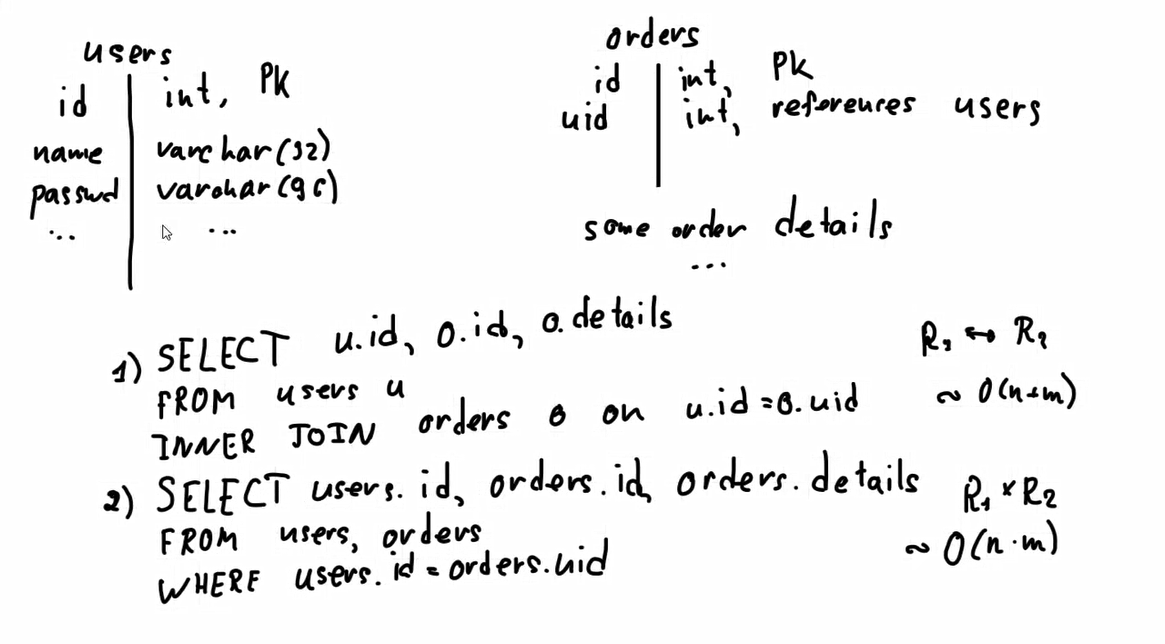 users
id int, PK
name varchar(32)
passwd varchar(96)
... ...
orders
id int, PK
uid int, references users
some order details
...
1) SELECT u.id, o.id, o.details
FROM users u
INNER JOIN orders o on u.id=o.uid
R₁ ↔ R₂
~ O(n+m)
2) SELECT users.id, orders.id, orders.details
FROM users, orders
WHERE users.id = orders.uid
R₁ × R₂
~ O(n·m)